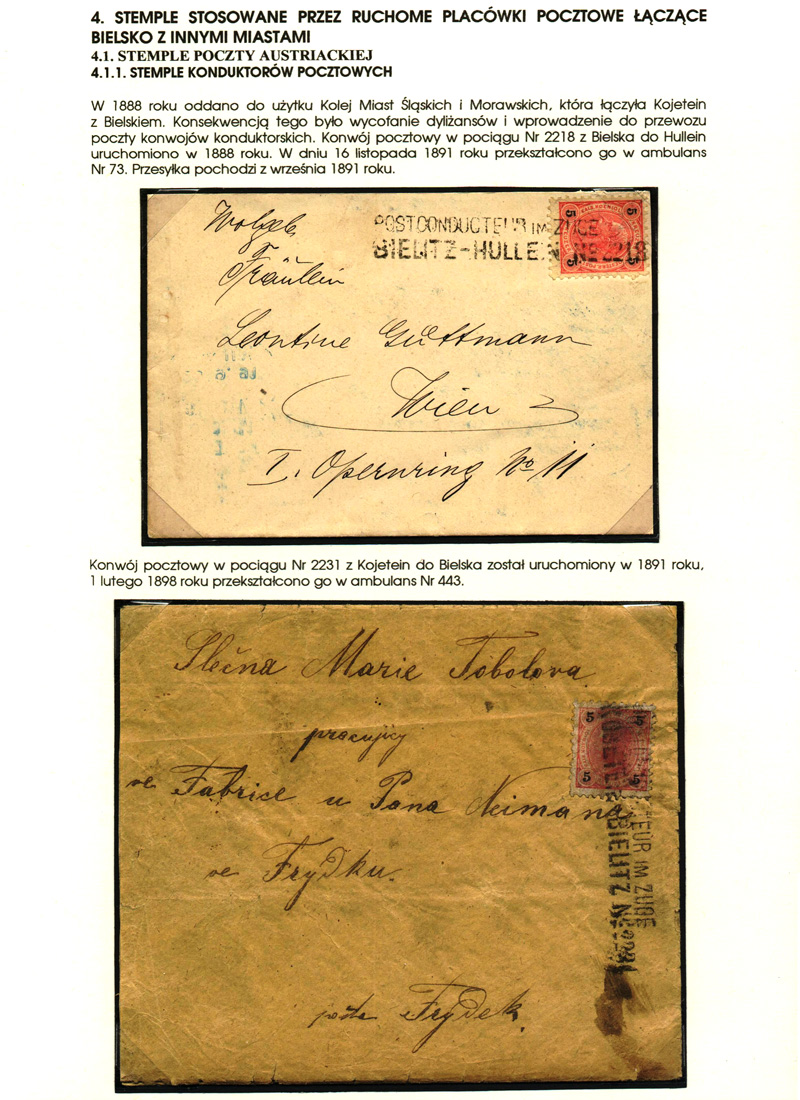 4. STEMPLE STOSOWANE PRZEZ RUCHOME PLACÓWKI POCZTOWE ŁĄCZĄCE
BIELSKO Z INNYMI MIASTAMI
4.1. STEMPLE POCZTY AUSTRIACKIEJ
4.1.1. STEMPLE KONDUKTORÓW POCZTOWYCH
W 1888 roku oddano do użytku Kolej Miast Śląskich i Morawskich, która łączyła Kojetein
z Bielskiem. Konsekwencją tego było wycofanie dyliżansów i wprowadzenie do przewozu
poczty konwojów konduktorskich. Konwój pocztowy w pociągu Nr 2218 z Bielska do Hullein
uruchomiono w 1888 roku. W dniu 16 listopada 1891 roku przekształcono go w ambulans
Nr 73. Przesyłka pochodzi z września 1891 roku.
POSTCONDUCTEUR IM ZUGE
BIELITZ-HULLEIN NE 2218
5 5
5 5
Fräulein
Leontine Guttmann
Wien
I. Opernring No 11
Konwój pocztowy w pociągu Nr 2231 z Kojetein do Bielska został uruchomiony w 1891 roku,
1 lutego 1898 roku przekształcono go w ambulans Nr 443.
Slečna Marie Tobolova
pracujicy
ve Fabrice u Pana Neimana
ve Frydku.
pošta Frydek.
5 5
5 5
EUR IM ZUGE
BIELITZ